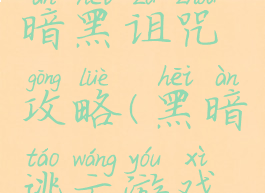 àn hēi zǔ zhòu
暗黑诅咒
gōng lüè hēi àn
攻略(黑暗
táo wáng yóu xì
逃亡游戏